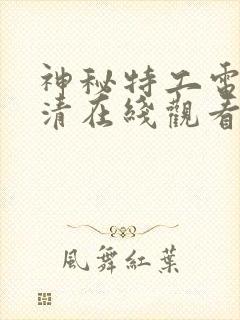 神秘特工電
清在綫觀看
風舞紅葉